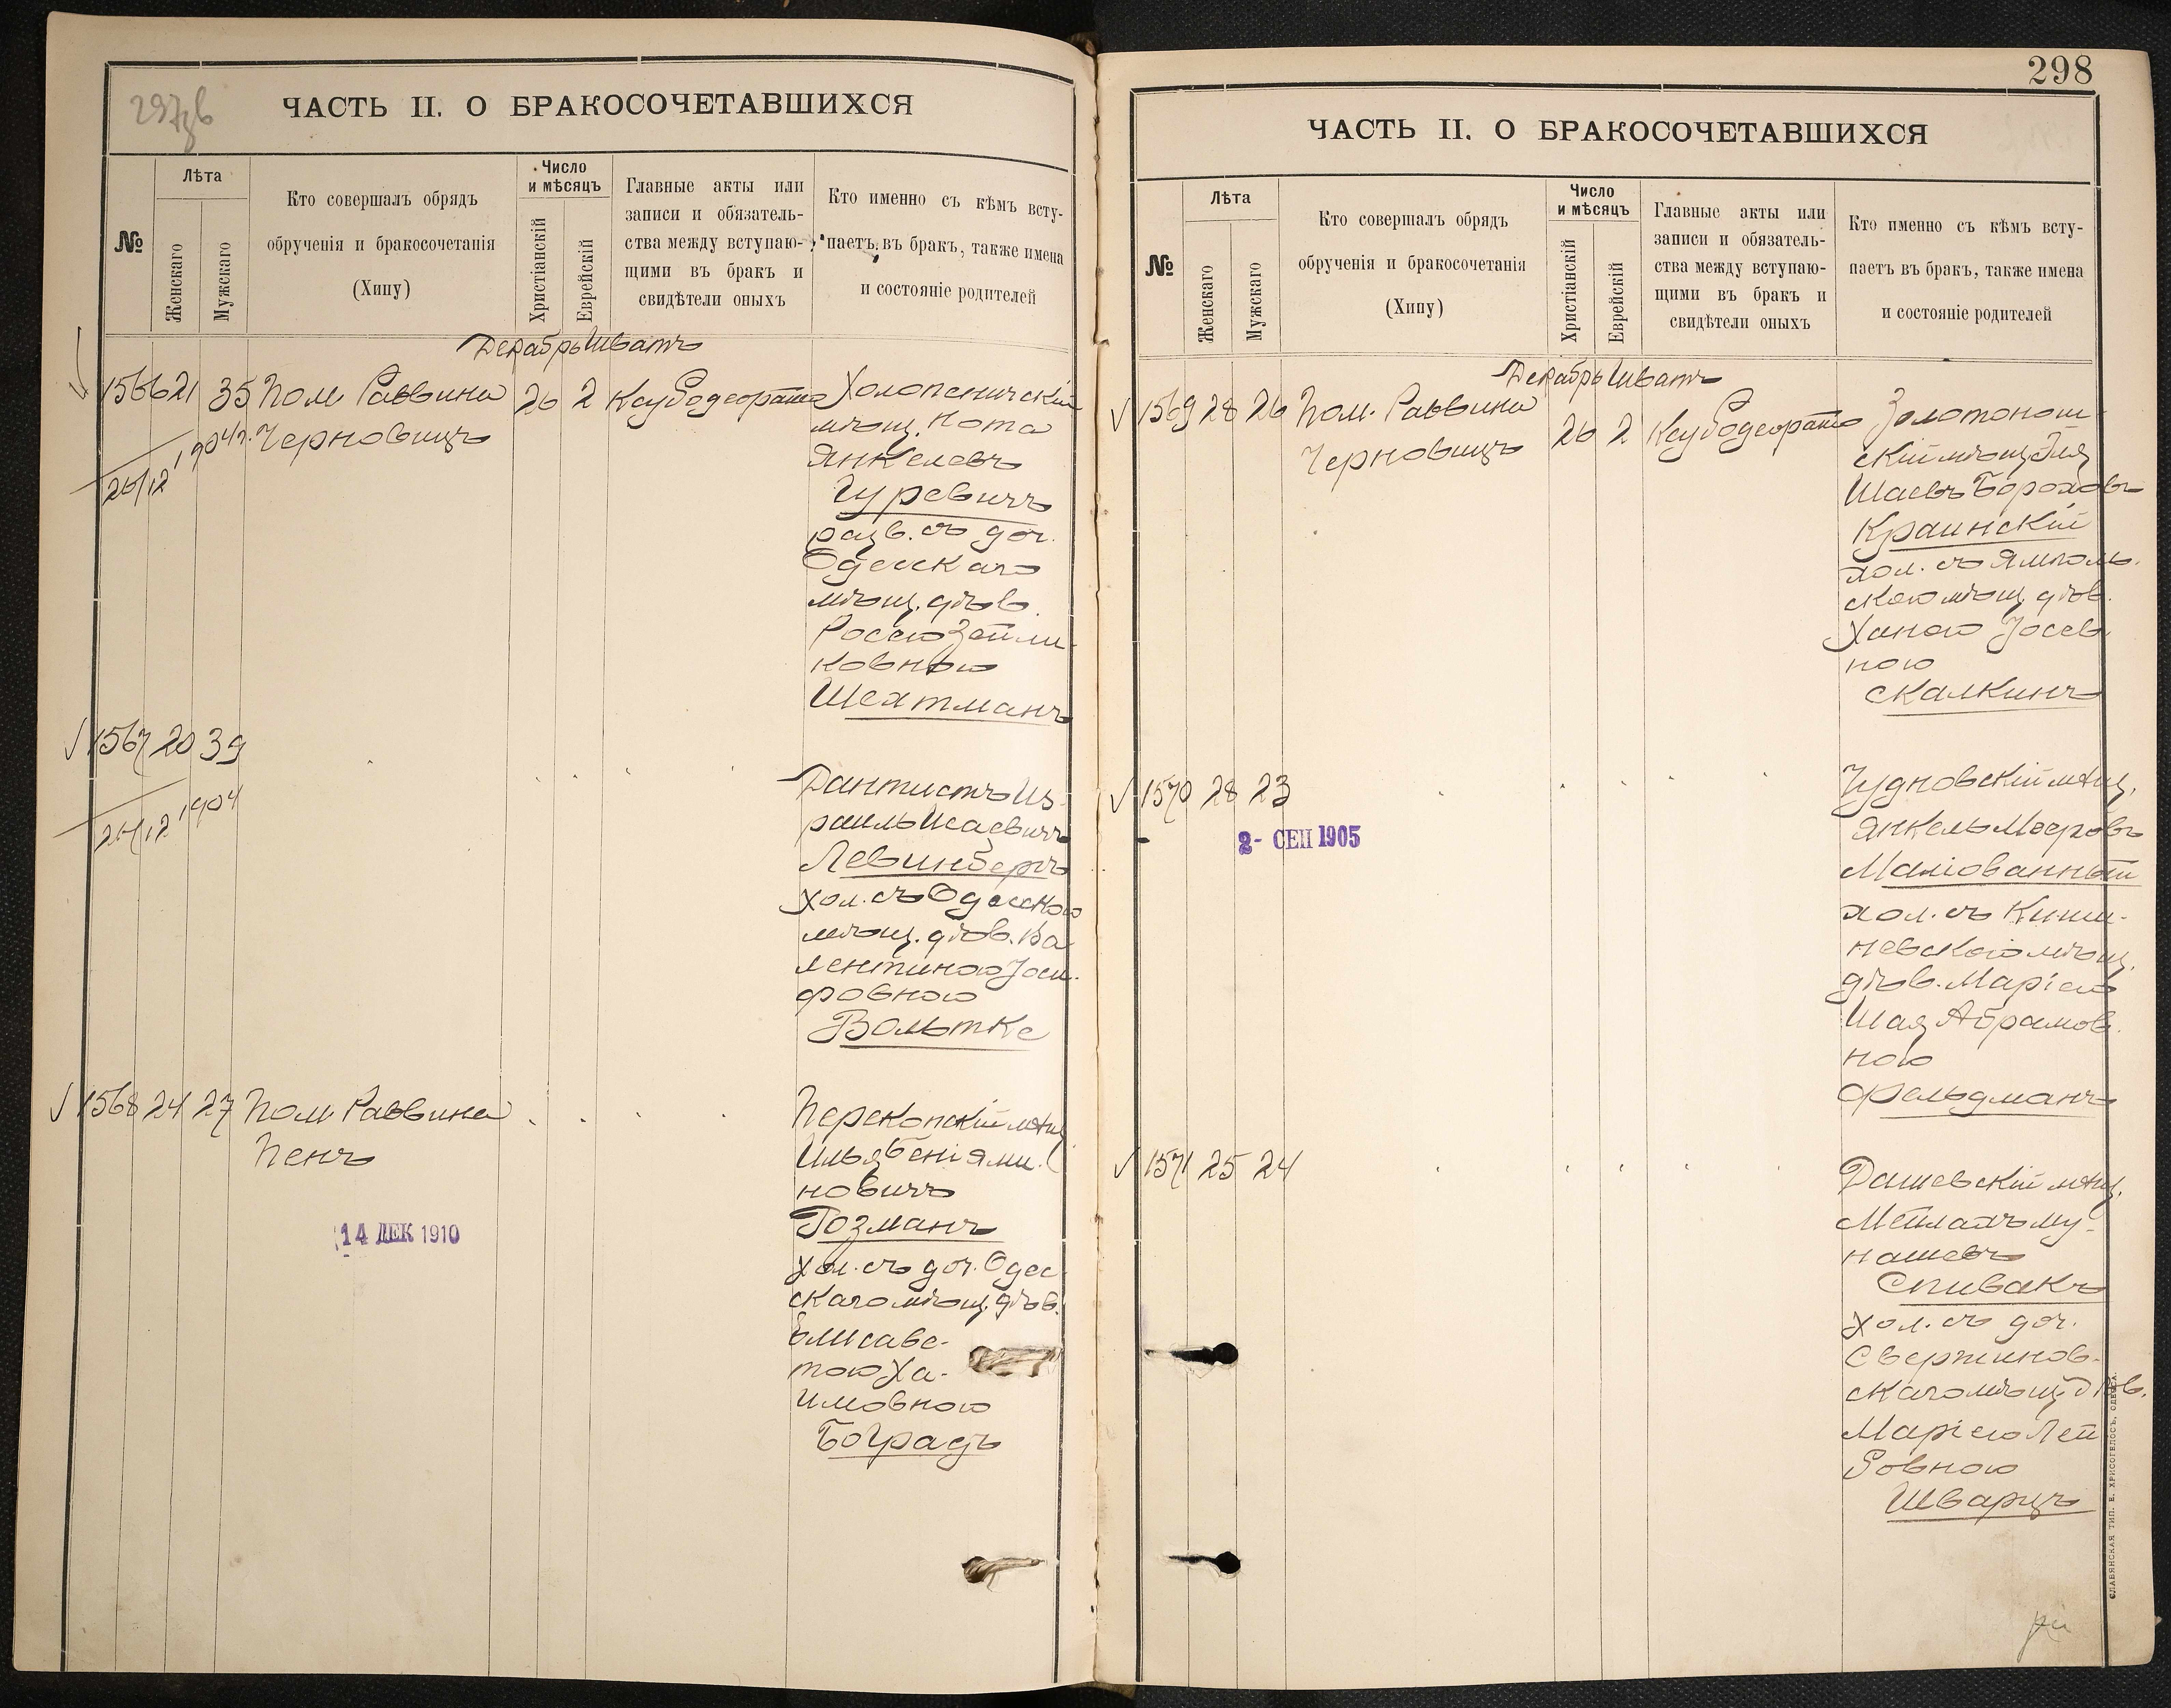 297об
ЧАСТЬ II. О БРАКОСОЧЕТАВШИХСЯ
№
Лѣта
Женскаго
Мужскаго
Кто совершалъ обрядъ
обрученія и бракосочетанія
(Хипу)
Число
и мѣсяцъ
Христіанскій
Еврейскій
Главные акты или
записи и обязатель-
ства между вступаю-
щими въ бракъ и
свидѣтели оныхъ
Кто именно съ кѣмъ всту-
паетъ въ бракъ, также имена
и состояніе родителей
Декабрь Шватъ
1566 21 35 Пом. Раввина 26 2 Ксубо де орайта Холопеничскій
Черновицъ
26/12 1904 г.
мѣщ. Нота
Янкелевъ
Гуревичъ
разв. съ доч.
Одесскаго
мѣщ. дѣв.
Россею Зейли-
ковною
Шехтманъ
1567 20 39
26/12 1904
Дантистъ Из-
раиль Исаевичъ
Левинбергъ
хол. съ Одесскою
мѣщ. дѣв. Ва-
лентиною Іоси-
фовною
Вольтке
1568 24 27 Пом. Раввина
Пенъ
14 ДЕК 1910
Перекопскій мѣщ.
Илья Беніями-
новичъ
Гозманъ
хол. съ доч. Одес-
скаго мѣщ. дѣв.
Елисаве-
тою Ха-
имовною
Боградъ
298
ЧАСТЬ II. О БРАКОСОЧЕТАВШИХСЯ
№
Лѣта
Женскаго
Мужскаго
Кто совершалъ обрядъ
обрученія и бракосочетанія
(Хипу)
Число
и мѣсяцъ
Христіанскій
Еврейскій
Главные акты или
записи и обязатель-
ства между вступаю-
щими въ бракъ и
свидѣтели оныхъ
Кто именно съ кѣмъ всту-
паетъ въ бракъ, также имена
и состояніе родителей
Декабрь Шватъ
1569 28 26 Пом. Раввина 26 2 Ксубо де орайта Золотонош-
Черновицъ
скій мѣщ. Эля
Шаевъ Бороховъ
Краинскій
хол. съ Ямполь-
скою мѣщ. дѣв.
Ханою Іосев-
ною
Скалкинъ
1570 28 23
2- СЕН 1905
Чудновскій мѣщ.
Янкель Мееровъ
Маліованный
хол. съ Киши-
невскою мѣщ.
дѣв. Маріею
Шая Абрамов-
ною
Фельдманъ
1571 25 24
Дашевскій мѣщ.
Мейлахъ Му-
нашевъ
Спивакъ
хол. съ доч.
Свержинов-
скаго мѣщ. дѣв.
Маріею Лей-
бовною
Шварцъ
СЛАВЯНСКАЯ ТИП. Е. ХРИСОГЕЛОСЪ, ОДЕССА.